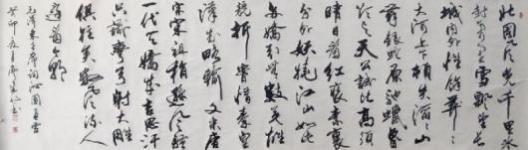 北国风光千里冰
封万里雪飘望长
城内外惟余莽莽
大河上下顿失滔滔山
舞银蛇原驰蜡象
欲与天公试比高须
晴日看红装素裹
分外妖娆江山如此
多娇引无数英雄
竞折腰惜秦皇
汉武略输文采唐
宗宋祖稍逊风骚
一代天骄成吉思汗
只识弯弓射大雕
俱往矣数风流人
物还看今朝
毛泽东主席词沁园春雪
癸卯